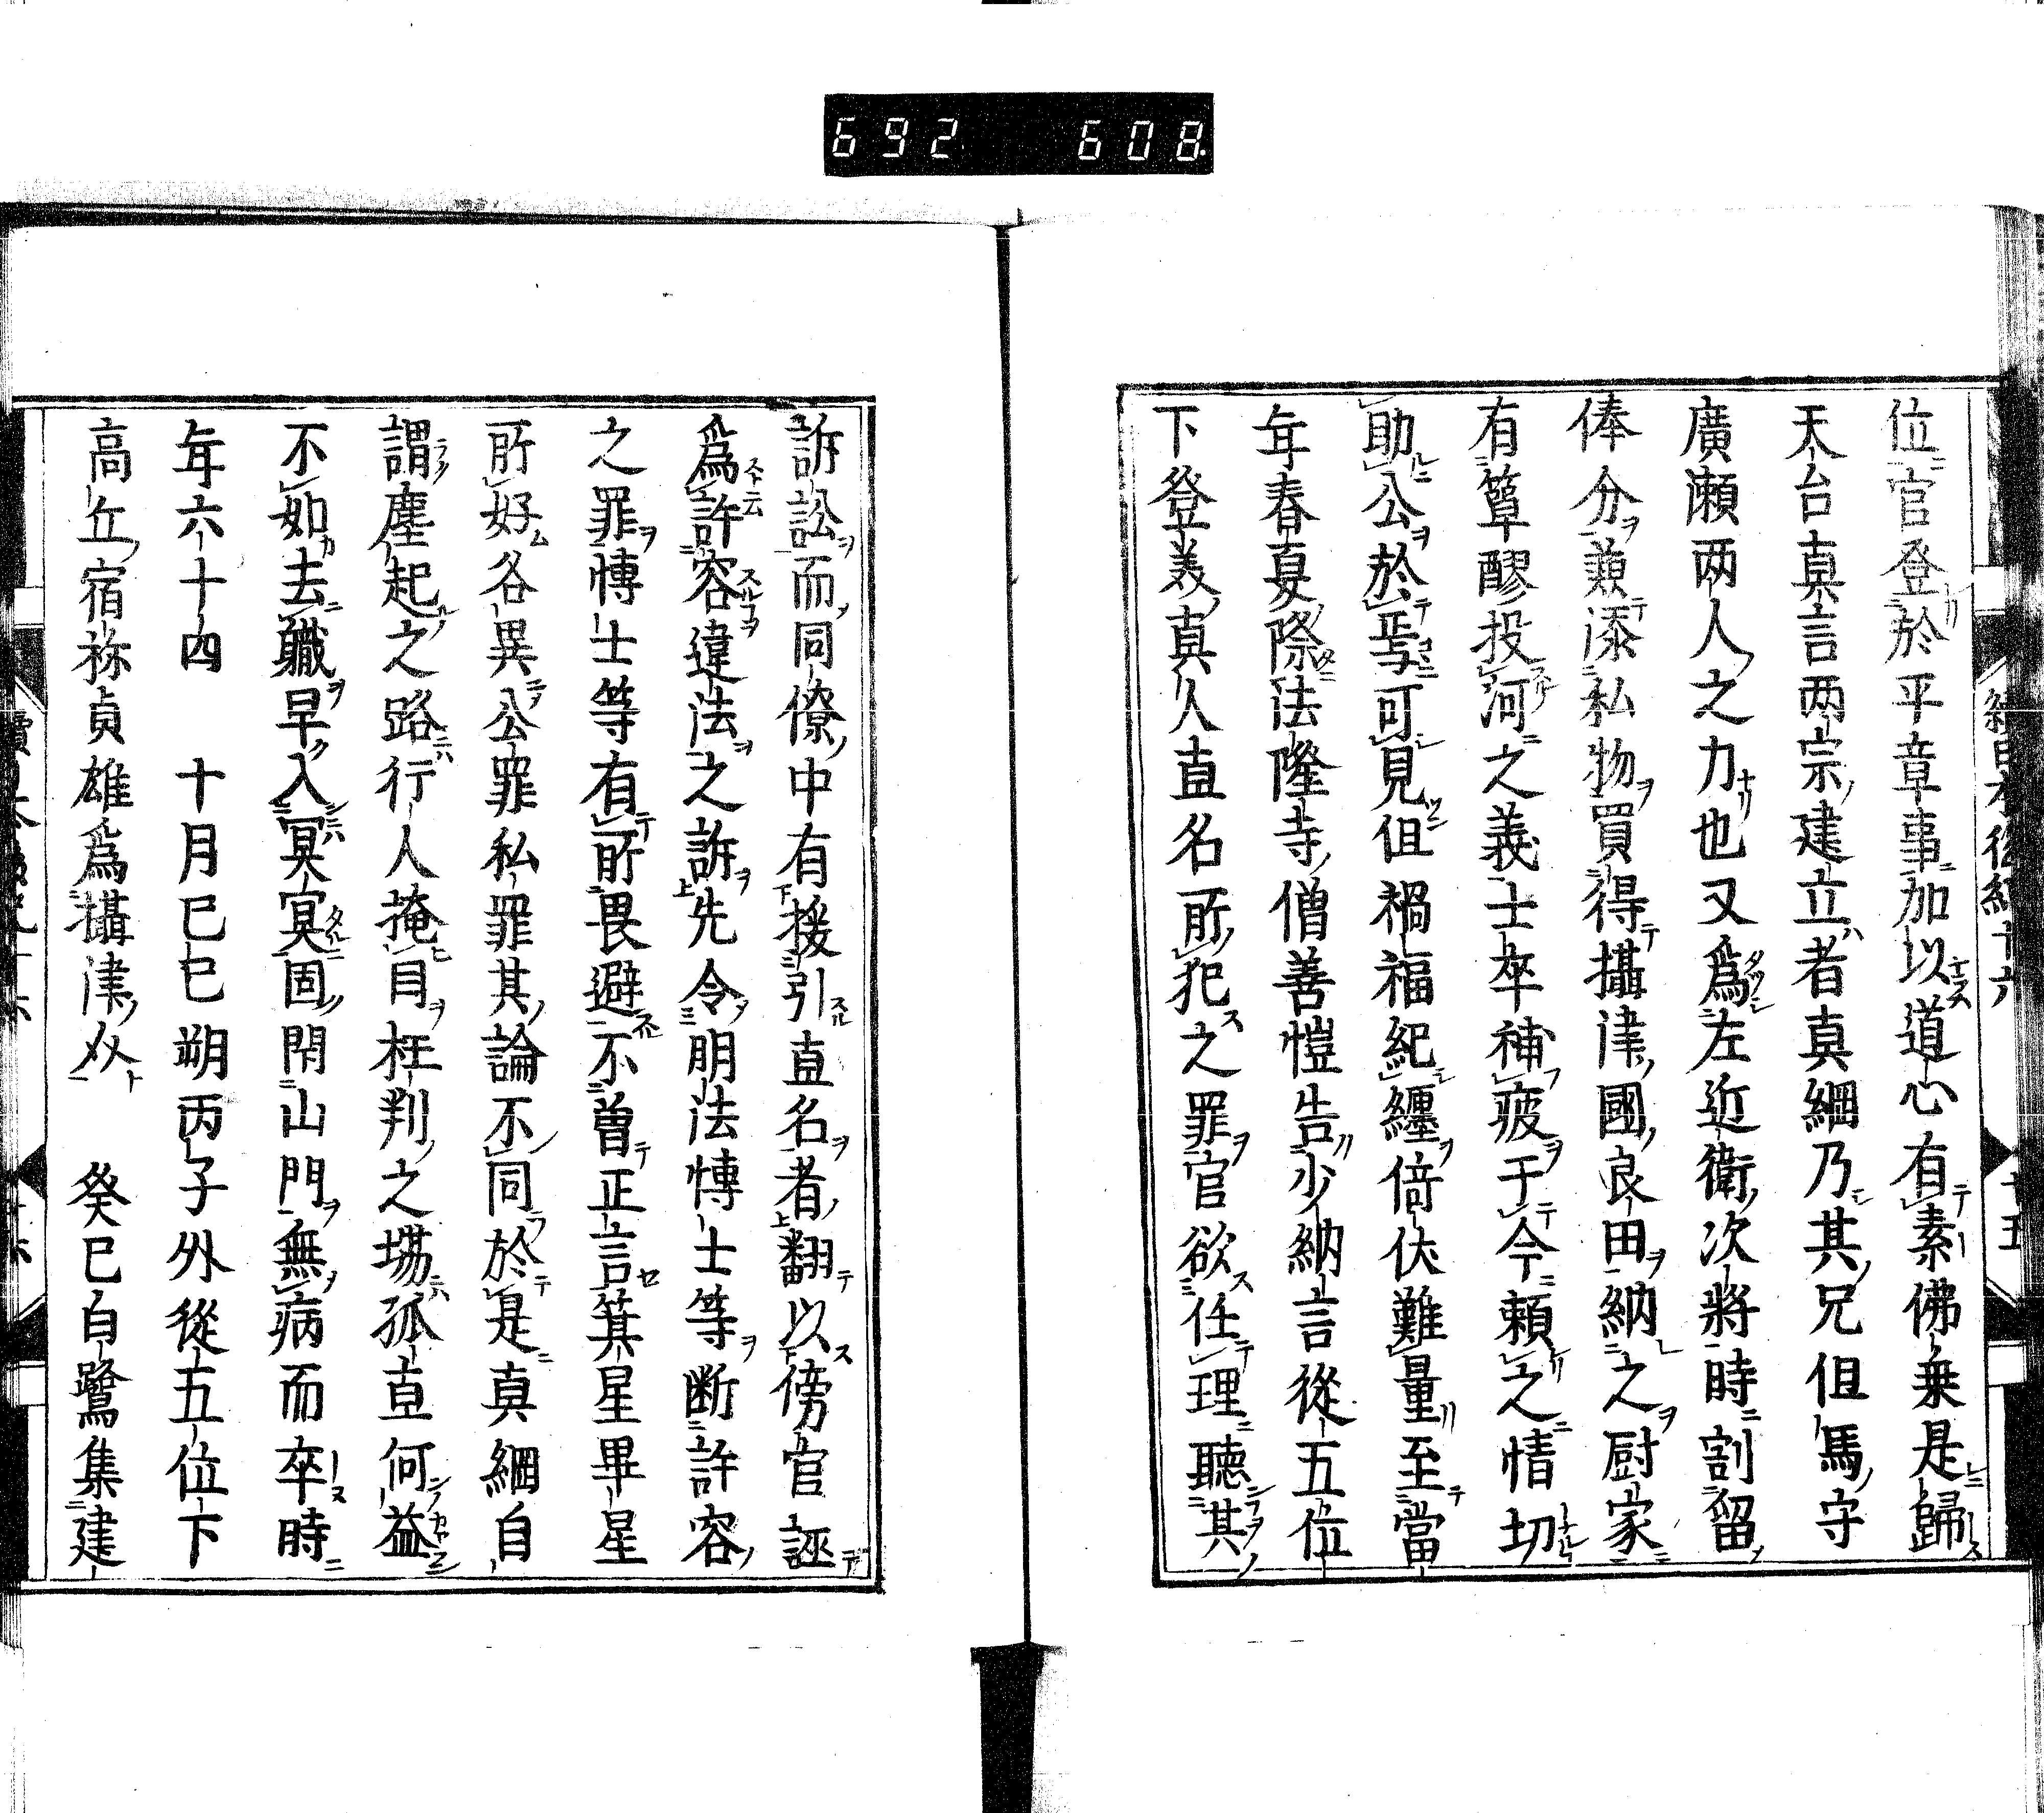 692 608
位官登於平章事加以道心有素佛乗是歸
天台真言两宗建立者真綱乃其兄但馬守
廣瀬两人之力也又爲左近衛次將時割留
俸分兼添私物買得攝津國良田納之厨家
有簞醪投河之義士卒補疲于今頼之情切
助公於焉可見但禍福紀纏倚伏難量至當
年春夏際法隆寺僧善愷告少納言從五位
下登美真人直名所犯之罪官欲任理聽其
訴訟而同僚中有援引直名者翻以傍官誣
爲許容違法之訴先令明法博士等断許容
之罪博士等有所畏避不曽正言箕星畢星
所好各異公罪私罪其論不同於是真綱自
謂塵起之路行人掩目枉判之塲孤直何益
不如去職早入冥冥固閇山門無病而卒時
年六十四　十月巳巳朔丙子外從五位下
高丘宿祢貞雄爲攝津介　癸巳白鷺集建